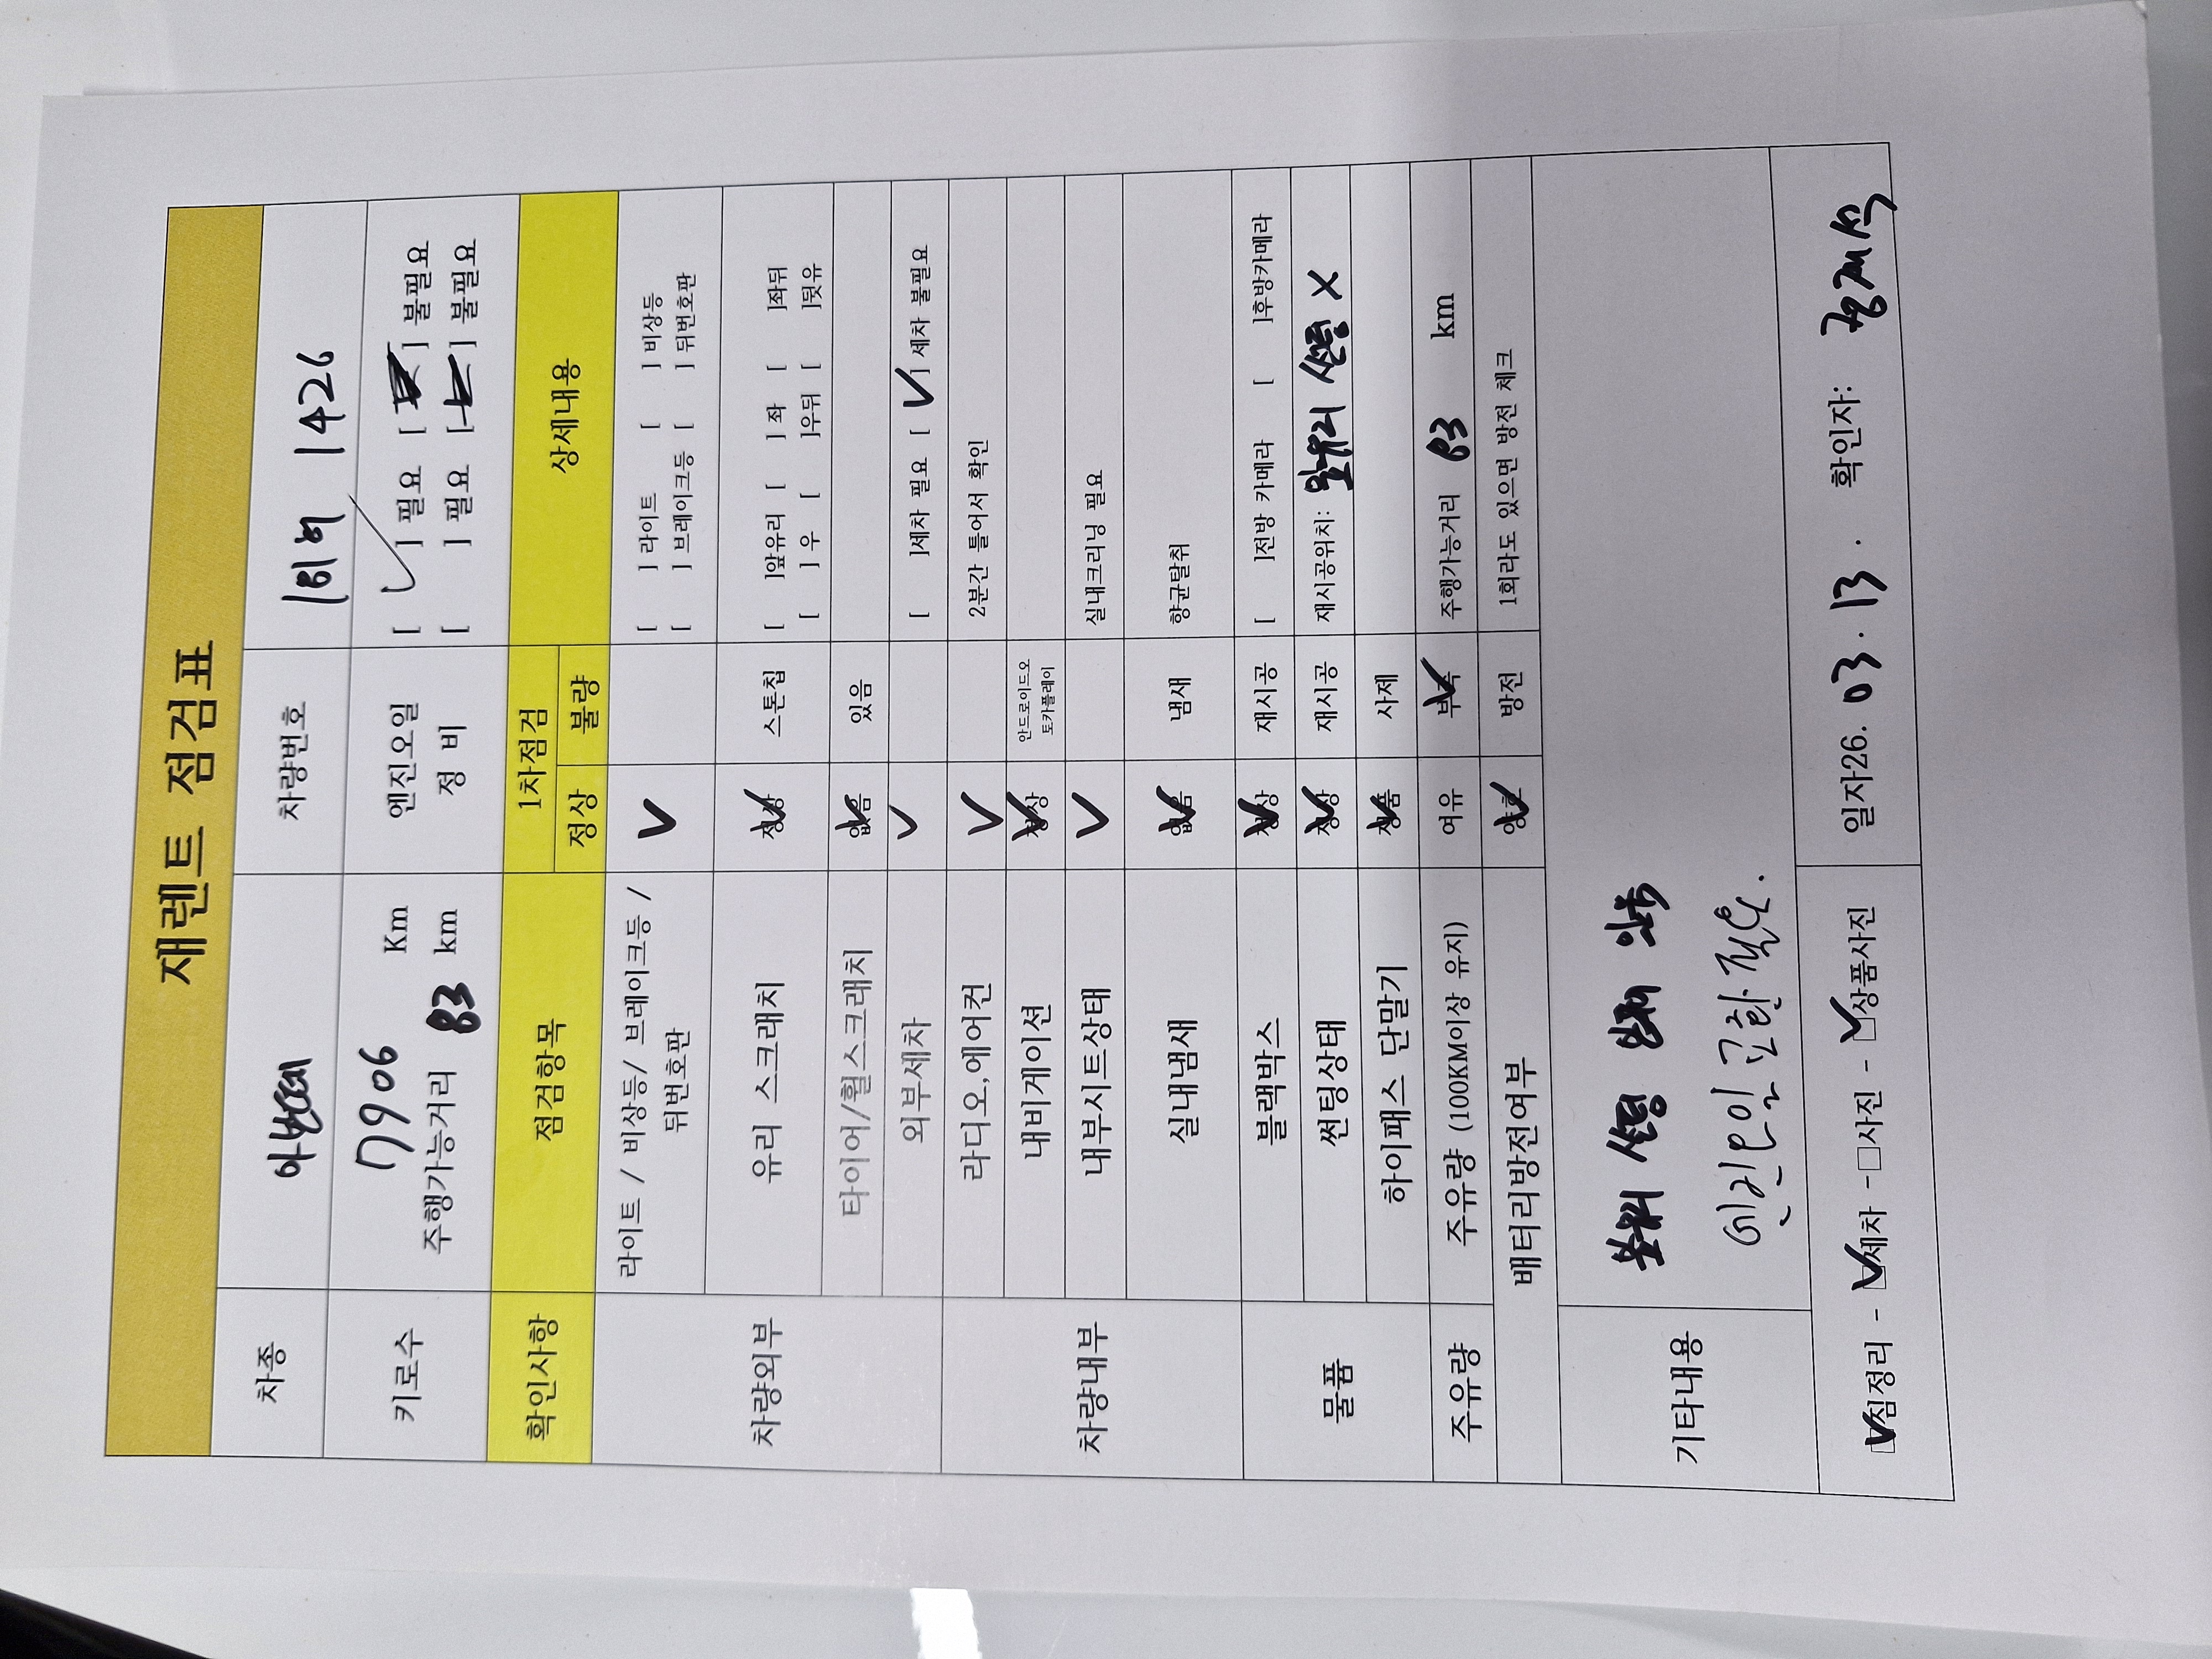 재렌트 점검표
차종 아반떼 차량번호 1426
키로수 7906 Km 엔진오일 [ ✓ ] 필요 [ ] 불필요
주행가능거리 83 km 정 비 [ ] 필요 [ ] 불필요
확인사항 점검항목 1차점검 상세내용
정상 불량
차량외부 라이트 / 비상등/ 브레이크등 / ✓ [ ] 라이트 [ ] 비상등
뒤번호판 [ ] 브레이크등 [ ] 뒤번호판
유리 스크래치 정상 ✓ 스톤칩 [ ]앞유리 [ ] 좌 [ ]좌뒤
[ ] 우 [ ]우뒤 [ ]뒷유
타이어/휠스크래치 없음 ✓ 있음
외부세차 ✓ [ ]세차 필요 [ ✓ ] 세차 불필요
차량내부 라디오,에어컨 ✓ 2분간 틀어서 확인
내비게이션 정상 ✓ 안드로이드오
토카플레이
내부시트상태 ✓ 실내크리닝 필요
실내냄새 없음 ✓ 냄새 향균탈취
물품 블랙박스 정상 ✓ 재시공 [ ]전방 카메라 [ ]후방카메라
썬팅상태 정상 ✓ 재시공 재시공위치: 앞유리 썬팅 X
하이패스 단말기 정품 ✓ 사제
주유량 주유량 (100KM이상 유지) 여유 부족 ✓ 주행가능거리 83 km
배터리방전여부 양호 ✓ 방전 1회라도 있으면 방전 체크
기타내용 앞유리 썬팅
엔진오일 교환 필요.
☑짐정리 - ☑세차 - □사진 - ☑상품사진 일자26. 03. 13. 확인자: